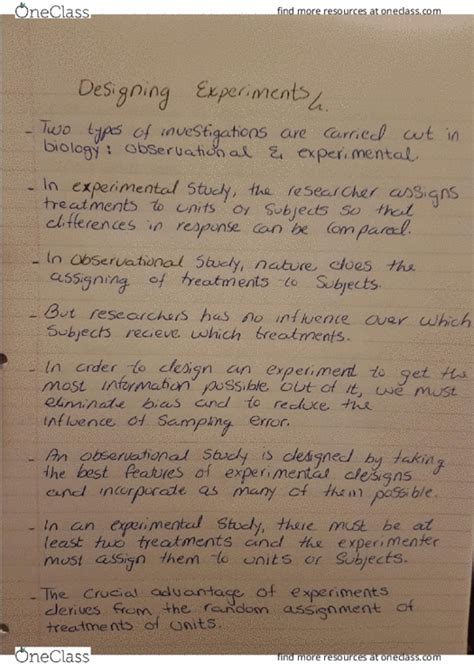 OneClass
find more resources at oneclass.com
Designing Experiments
- Two types of investigations are carried out in
biology: observational & experimental
- In experimental study, the researcher assigns
treatments to units or subjects so that
differences in response can be compared.
- In observational study, nature does the
assigning of treatments to subjects.
- But researchers has no influence over which
subjects recieve which treatments.
- In order to design an experiment to get the
most information possible out of it, we must
eliminate bias and to reduce the
influence of sampling error.
- An observational study is designed by taking
the best features of experimental designs
and incorporate as many of them possible.
- In an experimental study, there must be at
least two treatments and the experimenter
must assign them to units or subjects.
- The crucial advantage of experiments
derives from the random assignment of
treatments of units.
OneClass
find more resources at oneclass.com